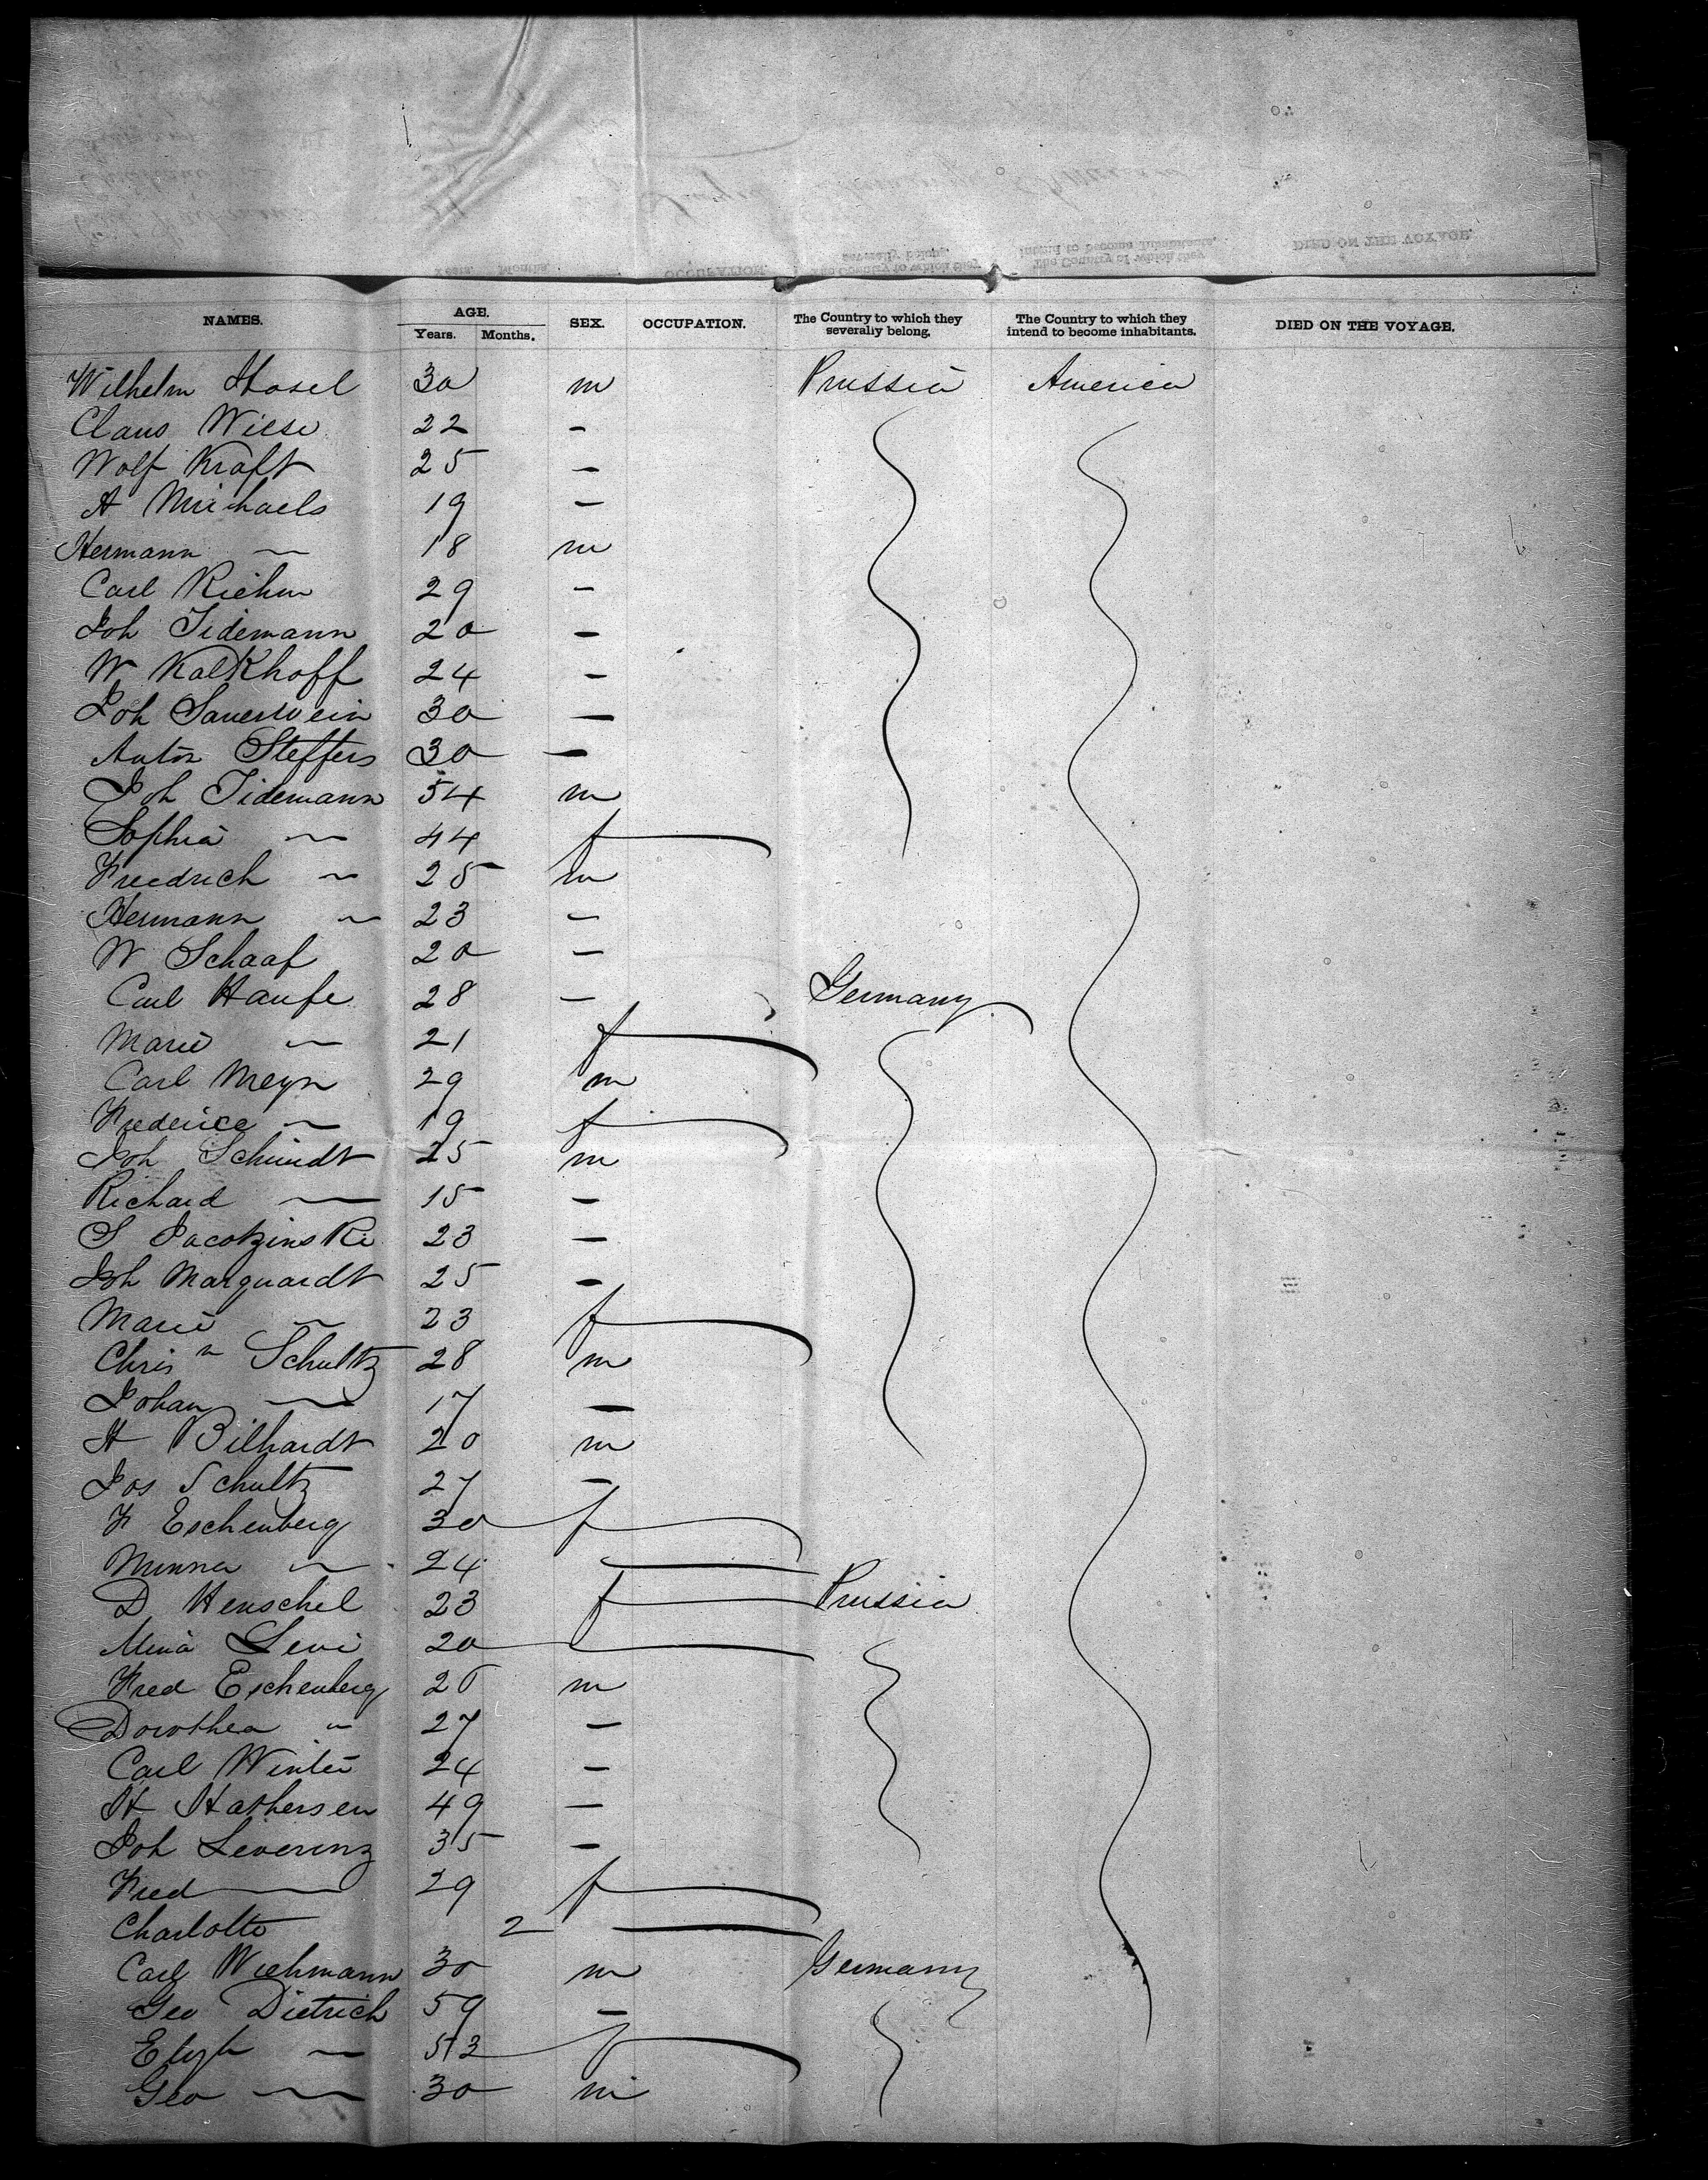 NAMES. AGE. SEX. OCCUPATION. The Country to which they severally belong. The Country to which they intend to become inhabitants. DIED ON THE VOYAGE.
Years. Months.
Wilhelm Hosel 30 m Prussia America
Claus Wiese 22 -
Wolf Kraft 25 -
A Michaels 19 -
Hermann — 18 m
Carl Riehm 29 -
Joh Tidemann 20 -
W Kalkhoff 24 -
Joh Sauerwein 30 -
Anton Steffers 30 -
Joh Tidemann 54 m
Sophia — 44 f
Friedrich — 25 m
Hermann — 23 -
W Schaaf 20 -
Carl Haufe 28 - Germany
Marie — 21 f
Carl Meyn 29 m
Frederice — 19 f
Joh Schmidt 25 m
Richard — 15 -
S Jacotzinski 23 -
Joh Marquardt 25 -
Marie — 23 f
Chris n Schultz 28 m
Johan — 17 -
H Bilhardt 20 m
Jos Schultz 27 -
F Eschenberg 30 f
Minna — 24 —
D Henschel 23 f Prussia
Mina Levi 20 —
Fred Eschenberg 26 m
Dorothea " 27 -
Carl Winter 24 -
H Hathersen 49 -
Joh Leverenz 35 -
Fred — 29 f
Charlotte 2 —
Carl Wiehmann 30 m Germany
Geo Dietrich 59 -
Elizh — 53 f
Geo — 30 m